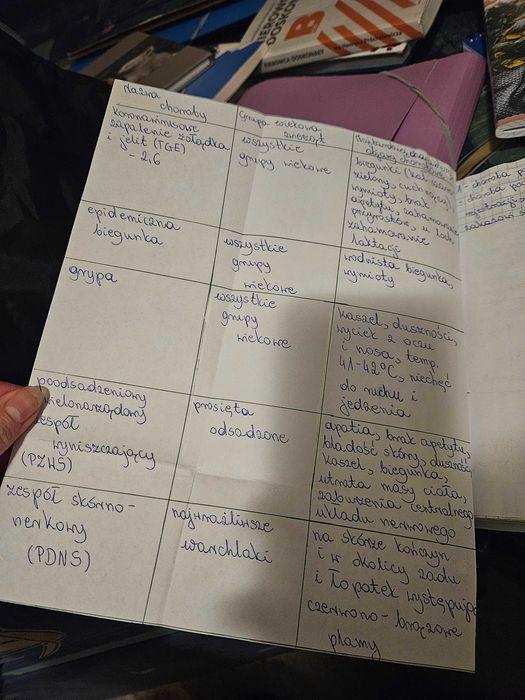 Nazwa
choroby
Grupa wiekowa
zwierząt
objawy chorobowe
koronawirusowe
zapalenie żołądka
i jelit (TGE)
- 2,6
wszystkie
grupy wiekowe
biegunki (kał szaro
zielony, cuchnący),
wymioty, brak
apetytu, zahamowanie
przyrostów, u loch
zahamowanie
laktacji
epidemiczna
biegunka
wszystkie
grupy
wiekowe
wodnista biegunka,
wymioty
grypa
wszystkie
grupy
wiekowe
kaszel, duszności,
wyciek z oczu
i nosa, temp.
41-42°C, niechęć
do ruchu i
jedzenia
poodsadzeniowy
wielonarządowy
zespół
wyniszczający
(PZWS)
prosięta
odsadzone
apatia, brak apetytu,
bladość skóry, duszność
kaszel, biegunka,
utrata masy ciała,
zaburzenia centralnego
układu nerwowego
zespół skórno-
nerkowy
(PDNS)
najwrażliwsze
warchlaki
na skórze kończyn
i w okolicy zadu
i łopatek występują
czerwono-brązowe
plamy
B
- choroba